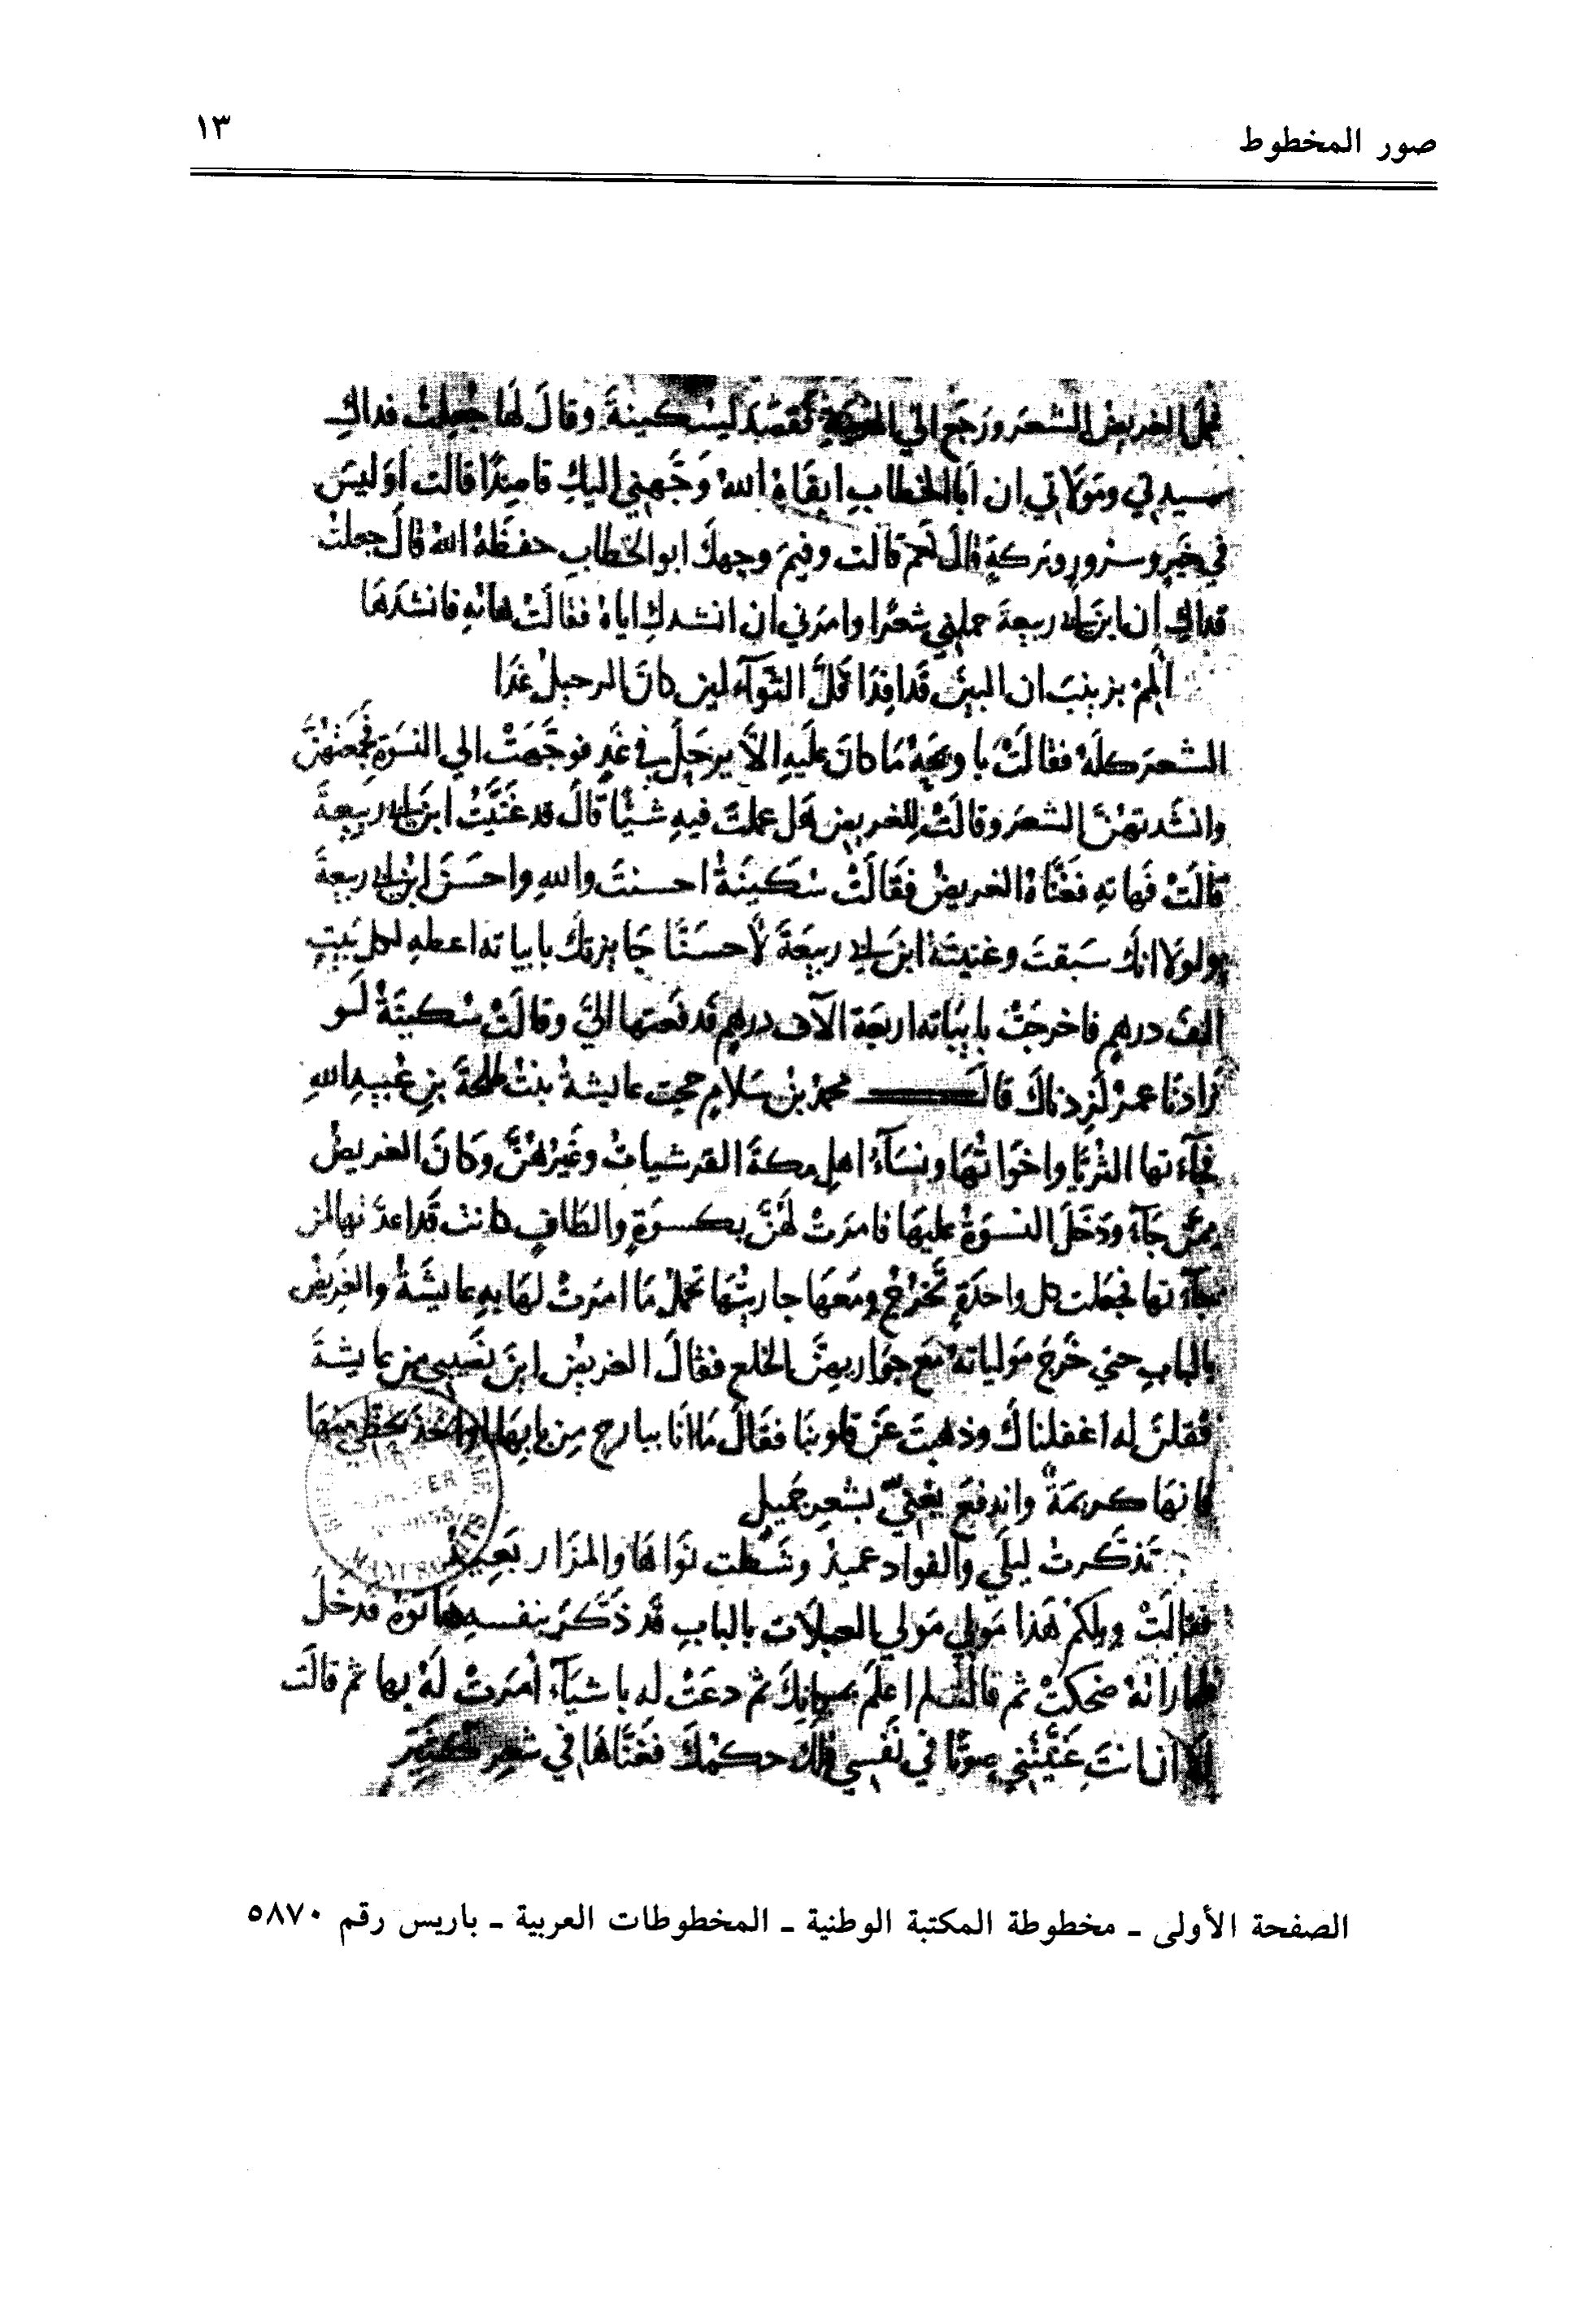 صور المخطوط
١٣
الغريض الشعر ورجع الي فقصد لِسُكينةَ وقالَ لها جُعِلتُ فداكِ
سيدتي ومَوْلاتي ان ابا الخطاب ابقَاهُ اللهُ وَجَّهني اليكِ قاصِدًا قالت أوَليسَ
في خَيرٍ وسُرورٍ وبَركةٍ قالَ نَعم قالت وفيمَ وجهكَ ابو الخطابِ حفِظَهُ اللهُ قالَ جعلتُ
فداكِ إن ابنَ ابي ربيعةَ حملني شعرًا وامَرني ان انشدكِ اياهُ فقالتْ هاتهِ فانشدَها
الِمَّ بزينبَ ان البينَ قَد افِدَا قَلَّ الثَّوَآءُ لين كانَ الرحيلُ غَدَا
الشعرَ كلَهُ فقالَتْ يا ويحَهُ مَا كانَ عليهِ الاَّ يرحَلَ في غَدٍ فوجَّهَتْ الي النسوَةِ فجَمعَتْهُنَّ
وانشَدتهُنَّ الشعرَ وقالتْ للغريض هل عملتَ فيهِ شيًا قالَ قد غنَّيتُ ابنَ ابي ربيعةَ
قالَتْ فهاتهِ فغنَّاهُ الغريضُ فقَالَتْ سُكَينَةُ احسنتَ واللهِ واحسَنَ ابنُ ابي ربيعةَ
ولولا انكَ سَبقتَ وغنيتَهُ ابنَ ابي ربيعَةَ لاحسَنَّا جَايزتكَ بابياته اعطهِ لكل بَيتٍ
الفَ درهمٍ فاخرجَتْ بابيَاته اربعَة الآف درهمٍ فدفعتها اليَّ وقالَتْ سُكينَةُ لَو
زادنَا عمرُ لَزِدناكَ قالَ محمدُ بْنُ سَلامٍ حجت عايشةُ بنتُ طلحَةَ بنِ عُبيدِ اللهِ
فجآءتها الثُرَيَّا واخَوَاتُهَا ونسَآءُ اهلِ مكةَ القرشياتُ وغيرُهُنَّ وكانَ الغريضُ
مِمَّن جَآءَ ودَخَلَ النسوَةُ عليهَا فامَرتْ لهُنَّ بكسوَةٍ والطافٍ كانتْ قَد اعدَّتها لمن
جآءَتها فجَعلت كل واحدَةٍ تَخرُجُ ومَعَهَا جاريتُهَا تحملُ مَا امَرتْ لهَا بهِ عايشَةُ والغَريضُ
بالبابِ حتي خَرجَ مَولياتهُ مَعَ جوَاريهنَّ الخلع فقالَ الغريضُ اينَ نَصيبي مِن عايشةَ
فقلنَ له اغفلناكَ وذهبتَ عَن قلوبنَا فقَالَ مَا انَا ببارح مِن بابِهَا او اخذَ بحظّي منهَا
فانهَا كريمَةٌ واندفعَ يغنيّ بشعرِ جَميلٍ
تَذكَّرتُ ليلَي والفواد عميدُ وشَطَّت نوَاهَا والمزَارُ بَعِيدُ
فقالَتْ ويلكمُ هَذا مَولي العبلات بالبابِ قد ذَكَّرَ بنفسهِ هَاتوهُ فدخَلَ
فلمّا رأتهُ ضحكتْ ثم قالتْ لم اعلَم بمكانِكَ ثم دعَتْ له باشيآءَ امَرتْ لَهُ بها ثم قالَت
انْ انتَ غنَّيتَني صوتًا في نَفسي فلكَ حكمُكَ فغنَّاهَا في شعرِ كُثَيّر
الصفحة الأولى - مخطوطة المكتبة الوطنية - المخطوطات العربية - باريس رقم ٥٨٧٠